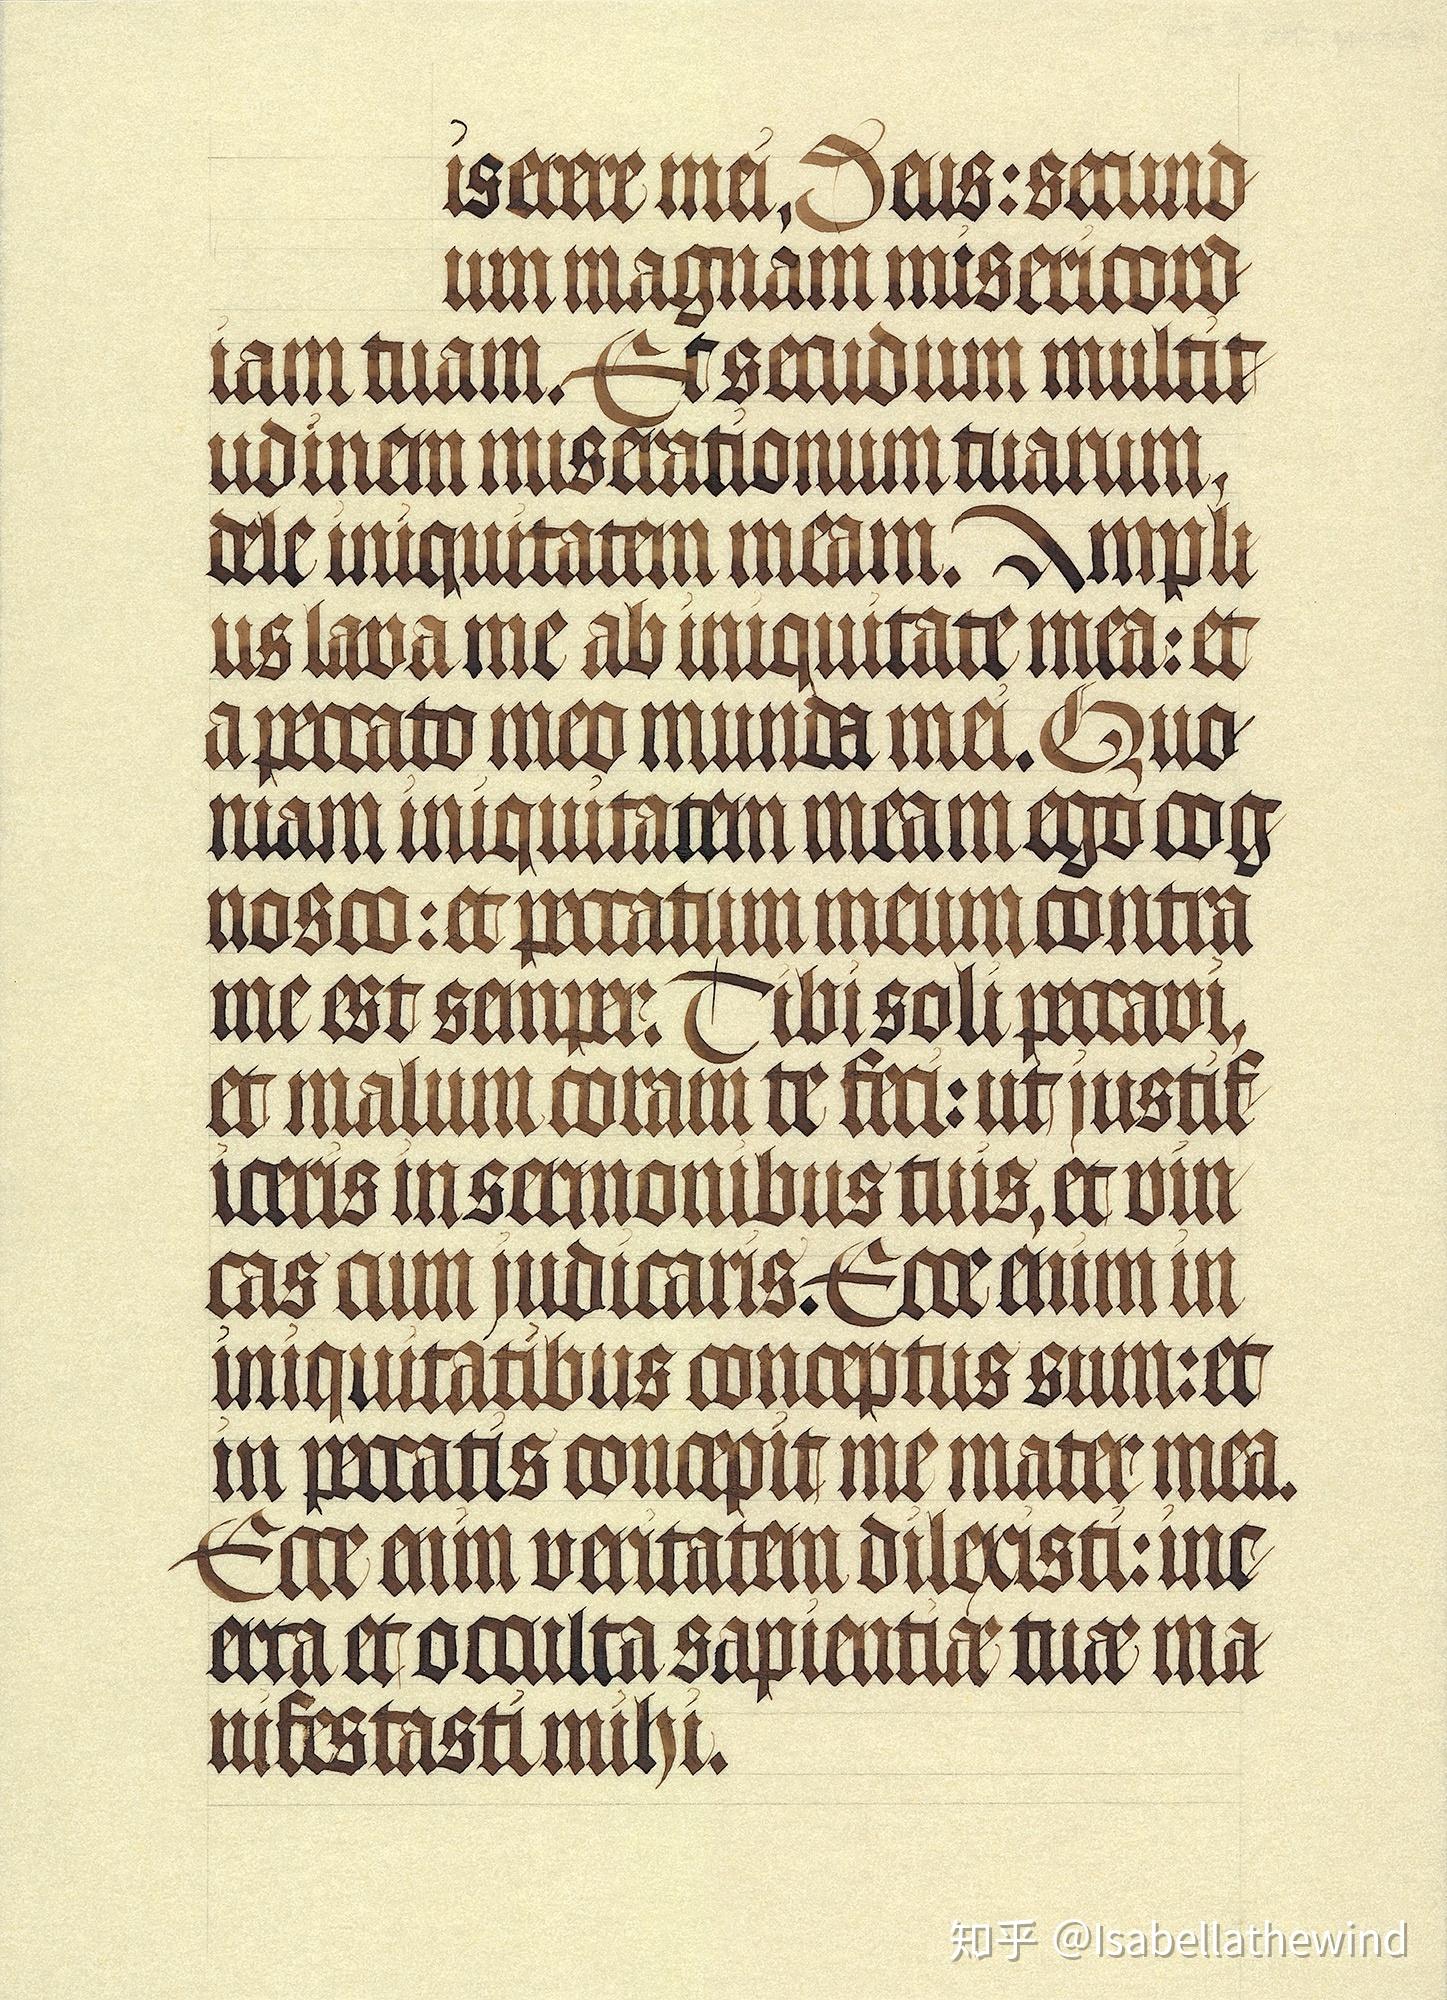 iserere mei, Deus: secund
um magnam misericord
iam tuam. Et secudum multit
udinem miserationum tuarum,
dele iniquitatem meam. Ampli
us lava me ab iniquitate mea: et
a peccato meo munda mei. Quo
niam iniquitatem meam ego cog
nosco: et peccatum meum contra
me est semper. Tibi soli peccavi,
et malum coram te feci: ut justif
iceris in sermonibus tuis, et vin
cas cum judicaris. Ecce enim in
iniquitatibus conceptus sum: et
in peccatis concepit me mater mea.
Ecce enim veritatem dilexisti: inc
erta et occulta sapientiæ tuæ ma
nifestasti mihi.
知乎 @Isabellathewind